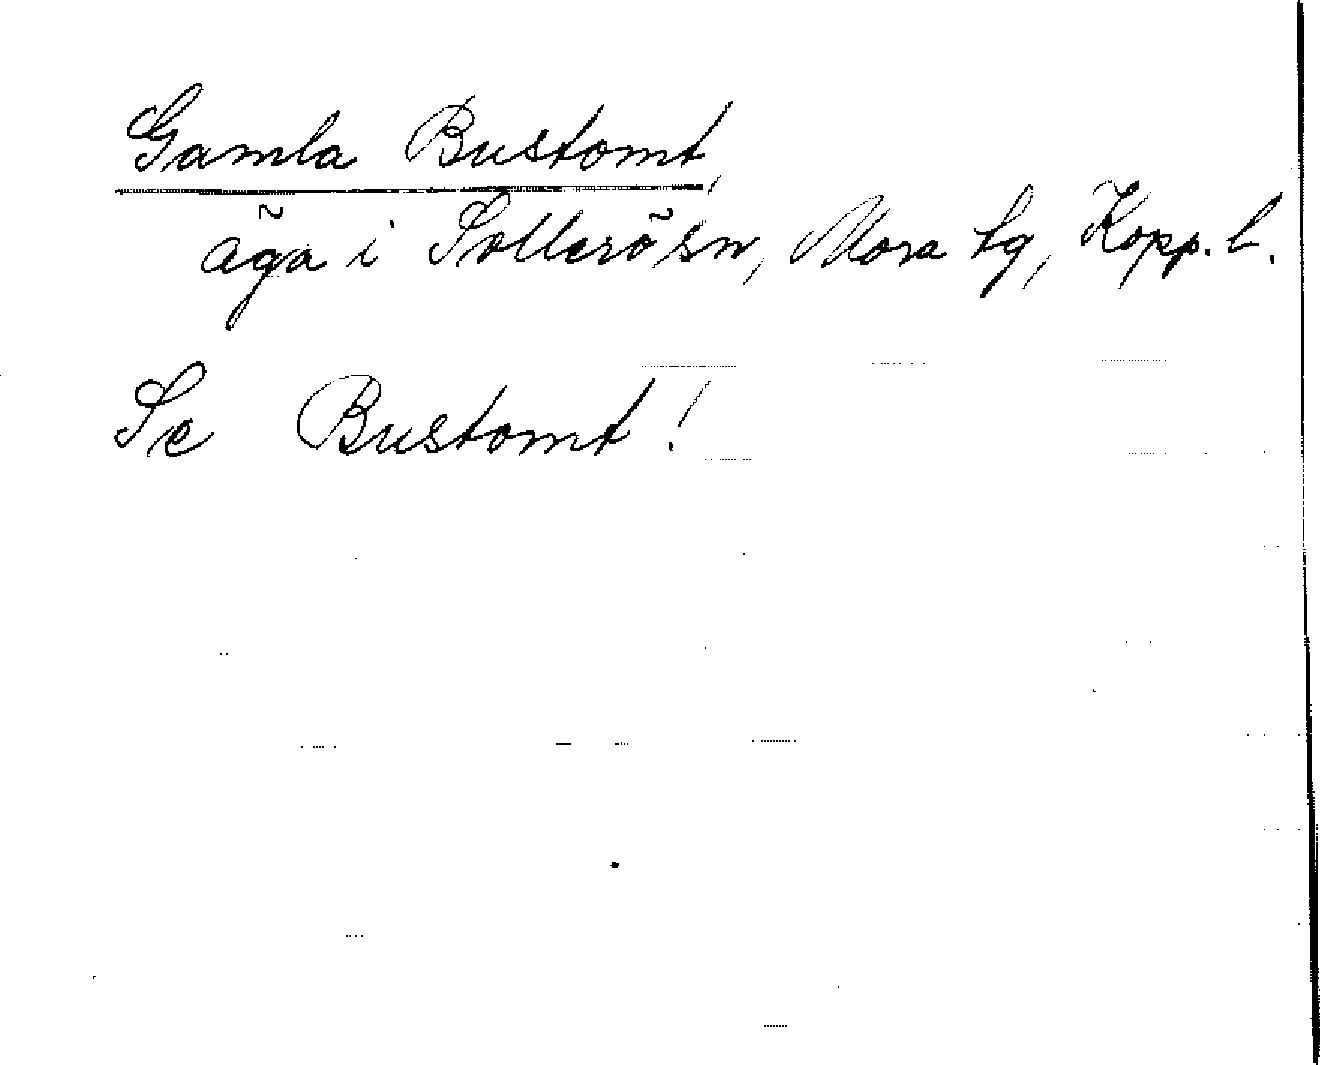 Gamla Bustomt,
äga i Sollerö sn, Mora tg, Kopp. l.
Se Bustomt!